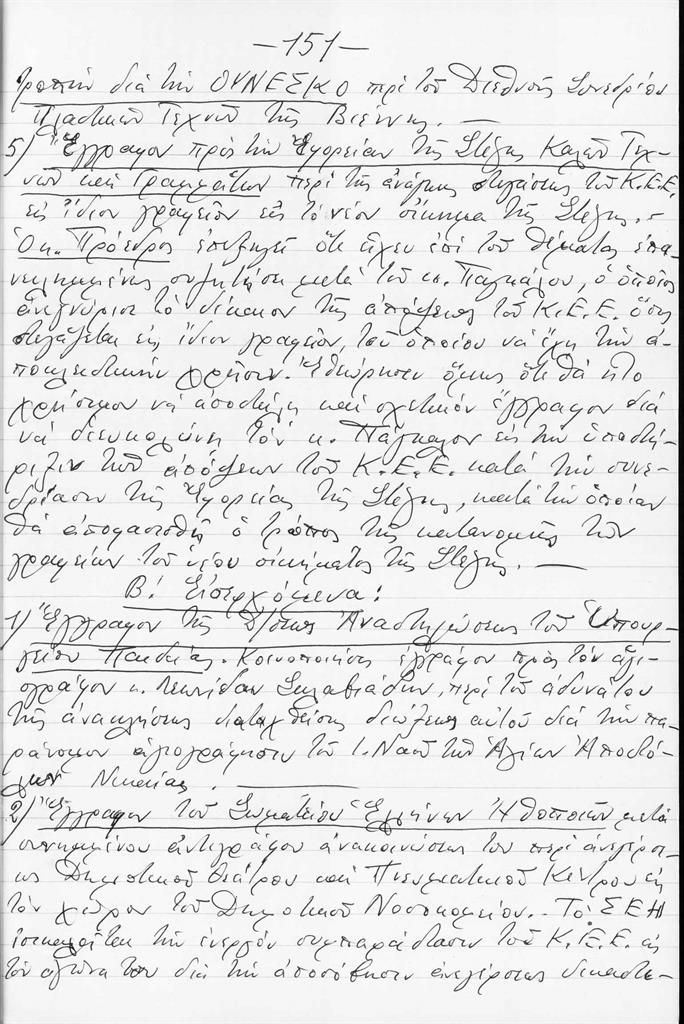 —151—
τροπὴν διὰ τὴν ΟΥΝΕΣΚΟ περὶ τοῦ Διεθνοῦς Συνεδρίου
Πλαστικῶν Τεχνῶν τῆς Βιέννης. —
5) Ἔγγραφον πρὸς τὴν Ἐφορείαν τῆς Στέγης Καλῶν Τεχ-
νῶν καὶ Γραμμάτων περὶ τῆς ἀνάγκης στεγάσεως τοῦ Κ.Ε.Ε.
εἰς ἴδιον γραφεῖον εἰς τὸ νέον οἴκημα τῆς Στέγης. –
Ὁ κ. Πρόεδρος ἐπεξηγεῖ ὅτι εἶχεν ἐπὶ τοῦ θέματος ἐπα-
νειλημμένως συζητήσει μετὰ τοῦ κ. Παγκάλου, ὁ ὁποῖος
ἀνεγνώρισε τὸ δίκαιον τῆς ἀπόψεως τοῦ Κ.Ε.Ε. ὅπως
στεγάζεται εἰς ἴδιον γραφεῖον, τοῦ ὁποίου νὰ ἔχῃ τὴν ἀ-
ποκλειστικὴν χρῆσιν. Ἐθεώρησεν ὅμως ὅτι θὰ ἦτο
χρήσιμον νὰ ἀποσταλῇ καὶ σχετικὸν ἔγγραφον διὰ
νὰ διευκολύνῃ τὸν κ. Πάγκαλον εἰς τὴν ὑποστή-
ριξιν τῶν ἀπόψεων τοῦ Κ.Ε.Ε. κατὰ τὴν συνε-
δρίασιν τῆς Ἐφορείας τῆς Στέγης, κατὰ τὴν ὁποίαν
θὰ ἀποφασισθῇ ὁ τρόπος τῆς κατανομῆς τῶν
γραφείων τοῦ νέου οἰκήματος τῆς Στέγης. —
Β! Εἰσερχόμενα:
1) Ἔγγραφον τῆς Δ/σεως Ἀναστηλώσεως τοῦ Ὑπουρ-
γείου Παιδείας. Κοινοποίησις ἐγγράφου πρὸς τὸν ἁγι-
ογράφον κ. Λεωνίδαν Σκλαβιάδην, περὶ τοῦ ἀδυνάτου
τῆς ἀνακλήσεως διαταχθείσης διώξεως αὐτοῦ διὰ τὴν πα-
ράνομον ἁγιογράφησιν τοῦ Ἱ. Ναοῦ τῶν Ἁγίων Ἀποστό-
λων Νικαίας. —
2) Ἔγγραφον τοῦ Σωματείου Ἑλλήνων Ἠθοποιῶν μετὰ
συνημμένου ἀντιγράφου ἀνακοινώσεως του περὶ ἀνεγέρσε-
ως Δημοτικοῦ Θεάτρου καὶ Πνευματικοῦ Κέντρου εἰς
τὸν χῶρον τοῦ Δημοτικοῦ Νοσοκομείου. – Τὸ ΣΕΗ
ἐπικαλεῖται τὴν ἐνεργὸν συμπαράστασιν τοῦ Κ.Ε.Ε. εἰς
τὸν ἀγῶνα του διὰ τὴν ἀποσόβησιν ἀνεγέρσεως δικαστι-